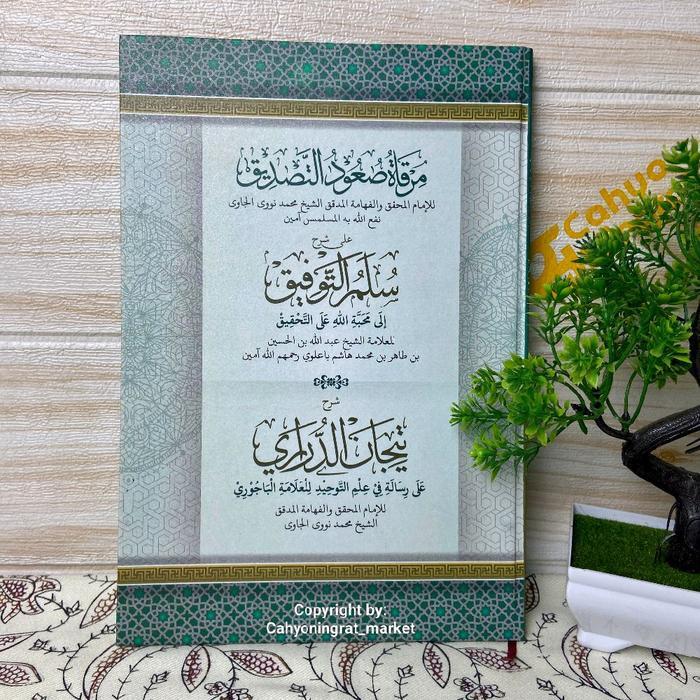 مِرْقَاةُ صُعُودُ التَّصْدِيْقِ
للإمام المحقق والفهامة المدقق الشيخ محمد نووى الجاوى
نفع الله به المسلمسن آمين
على شرح
سُلَّمُ التَّوْفِيْقِ
إلَى مَحَبَّةِ اللهِ عَلَى التَّحْقِيْقِ
لمعلامة الشيخ عبد الله بن الحسين
بن طاهر بن محمد هاشم باعلوي رحمهم الله آمين
شرح
تِيْجَانُ الدُّرَارِي
عَلَى رِسَالَةِ فِيْ عِلْمِ التَّوْحِيْدِ لِلْعَلَامَةِ الْبَاجُوْرِيْ
للإمام المحقق والفهامة المدقق
الشيخ محمد نووى الجاوى
Cahyo
Copyright by:
Cahyoningrat_market